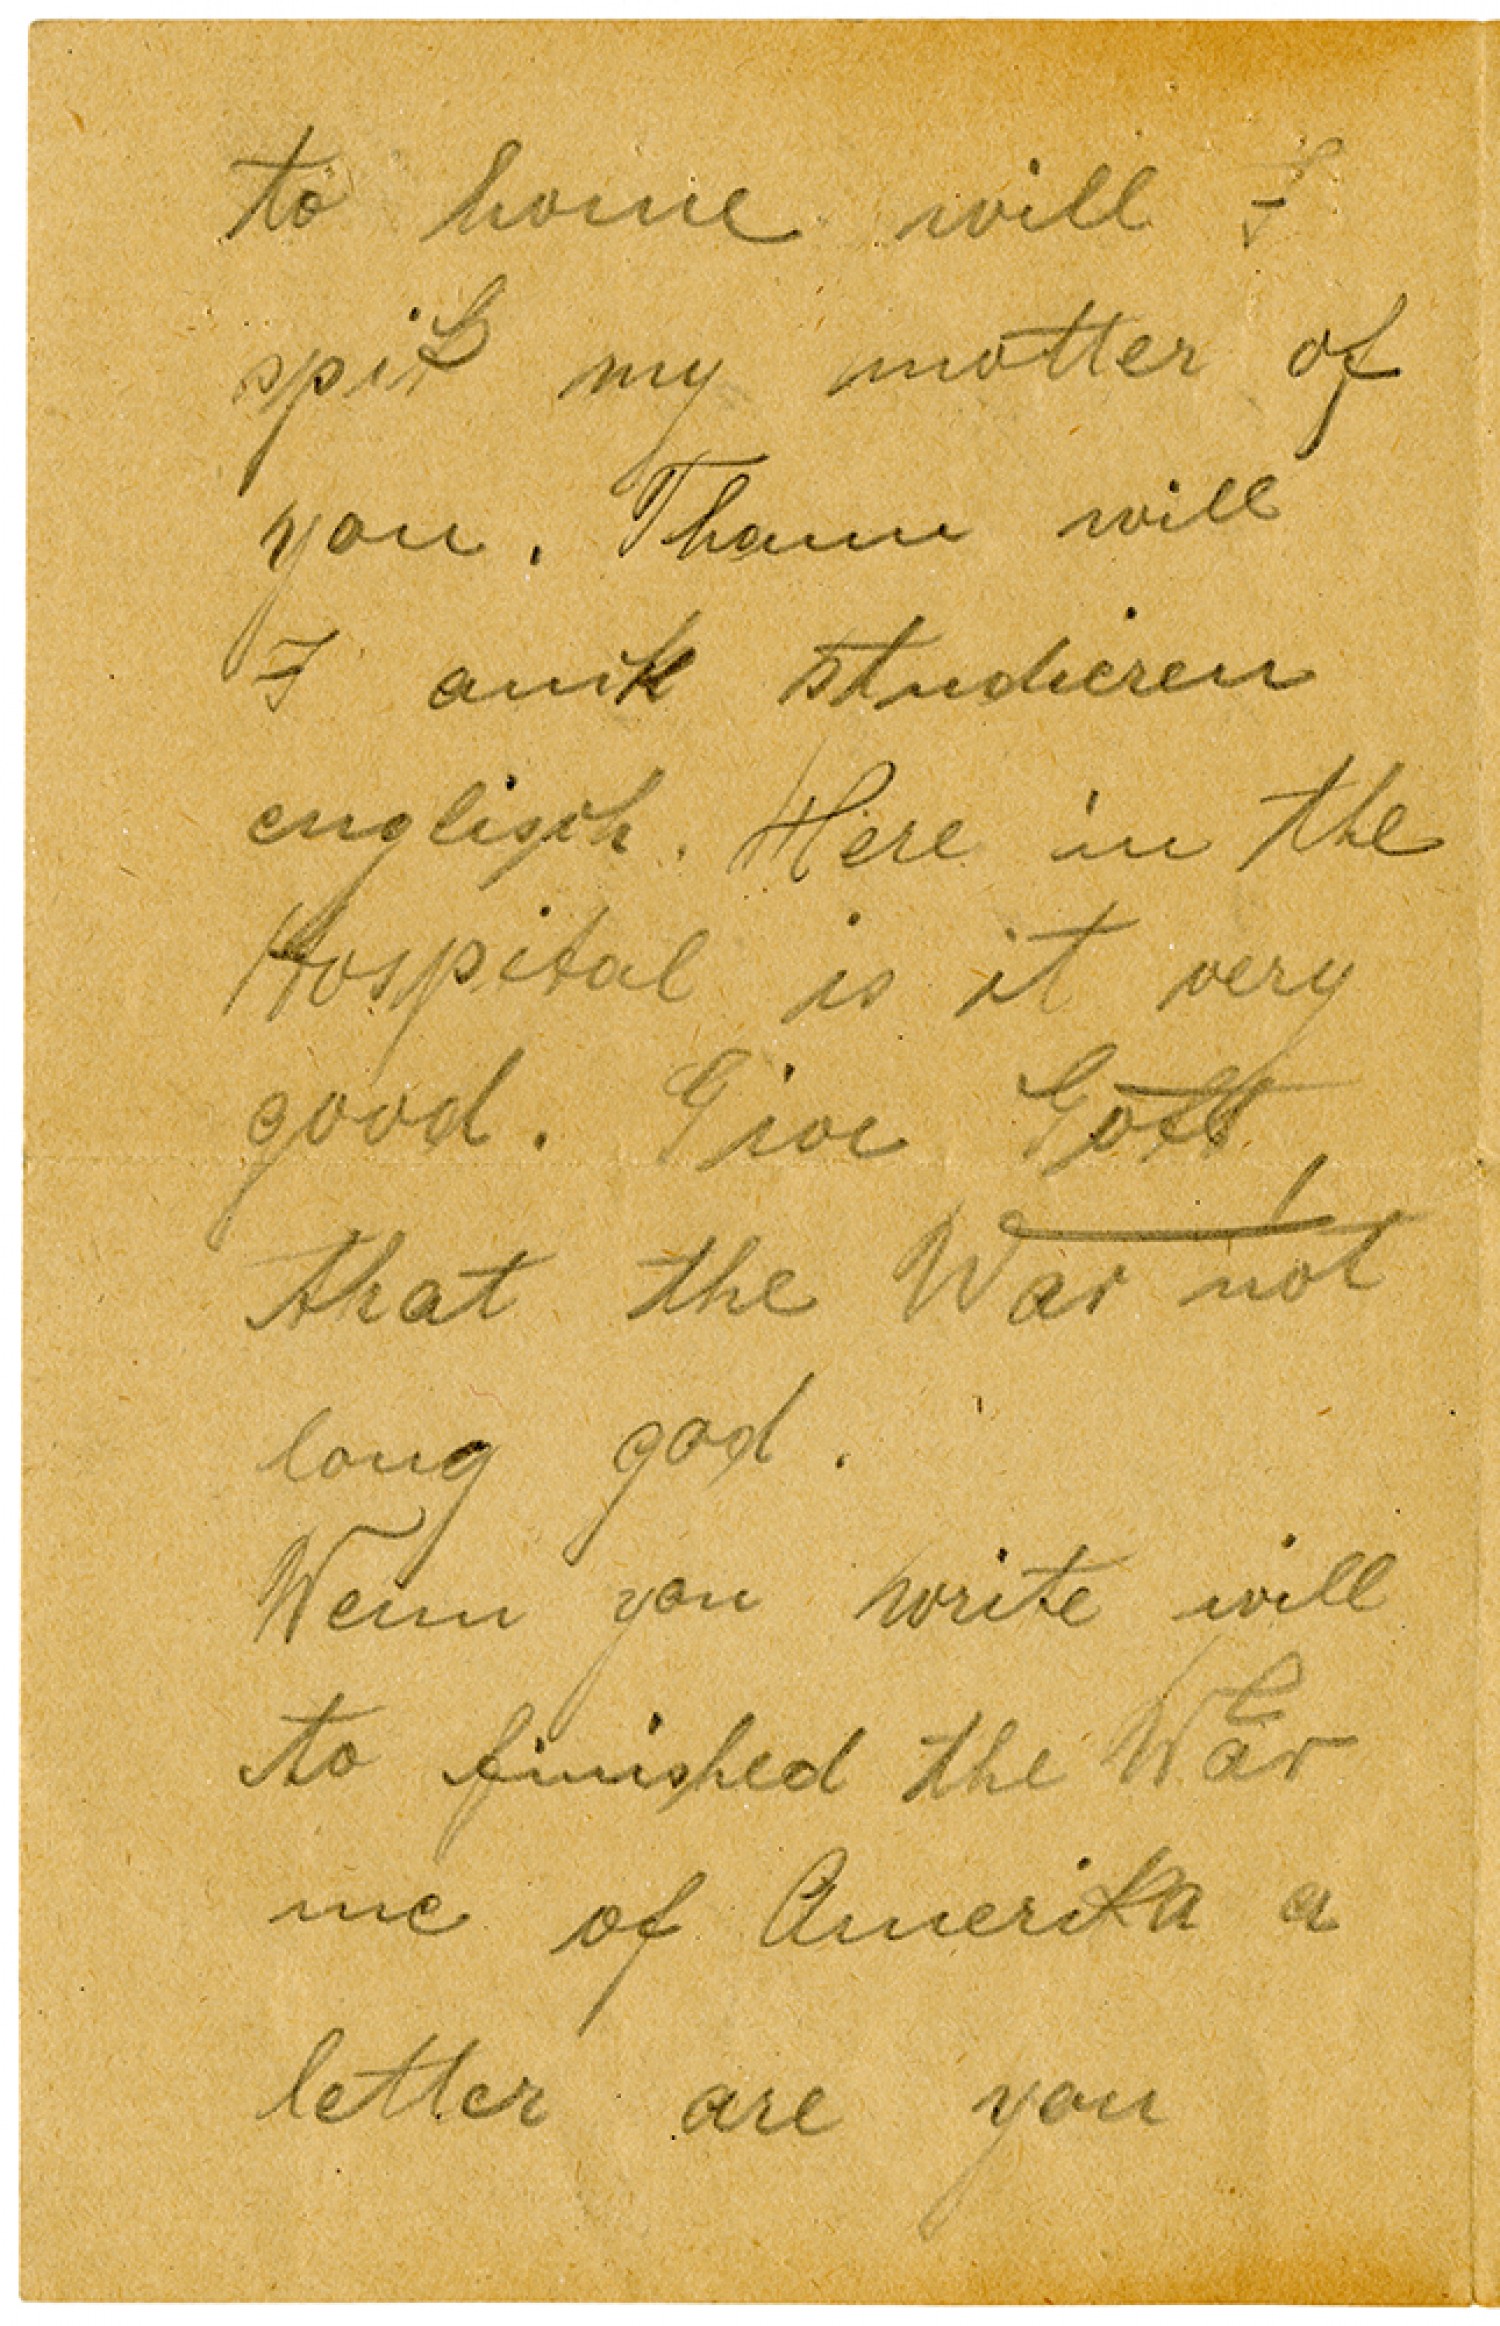 to home will I
spik my motter of
you. Thann will
I auik studieren
englisch. Here in the
Hospital is it very
good. Give Gott,
that the War not
long god.
Wenn you write will
to finished the War
me of Amerika a
letter are you